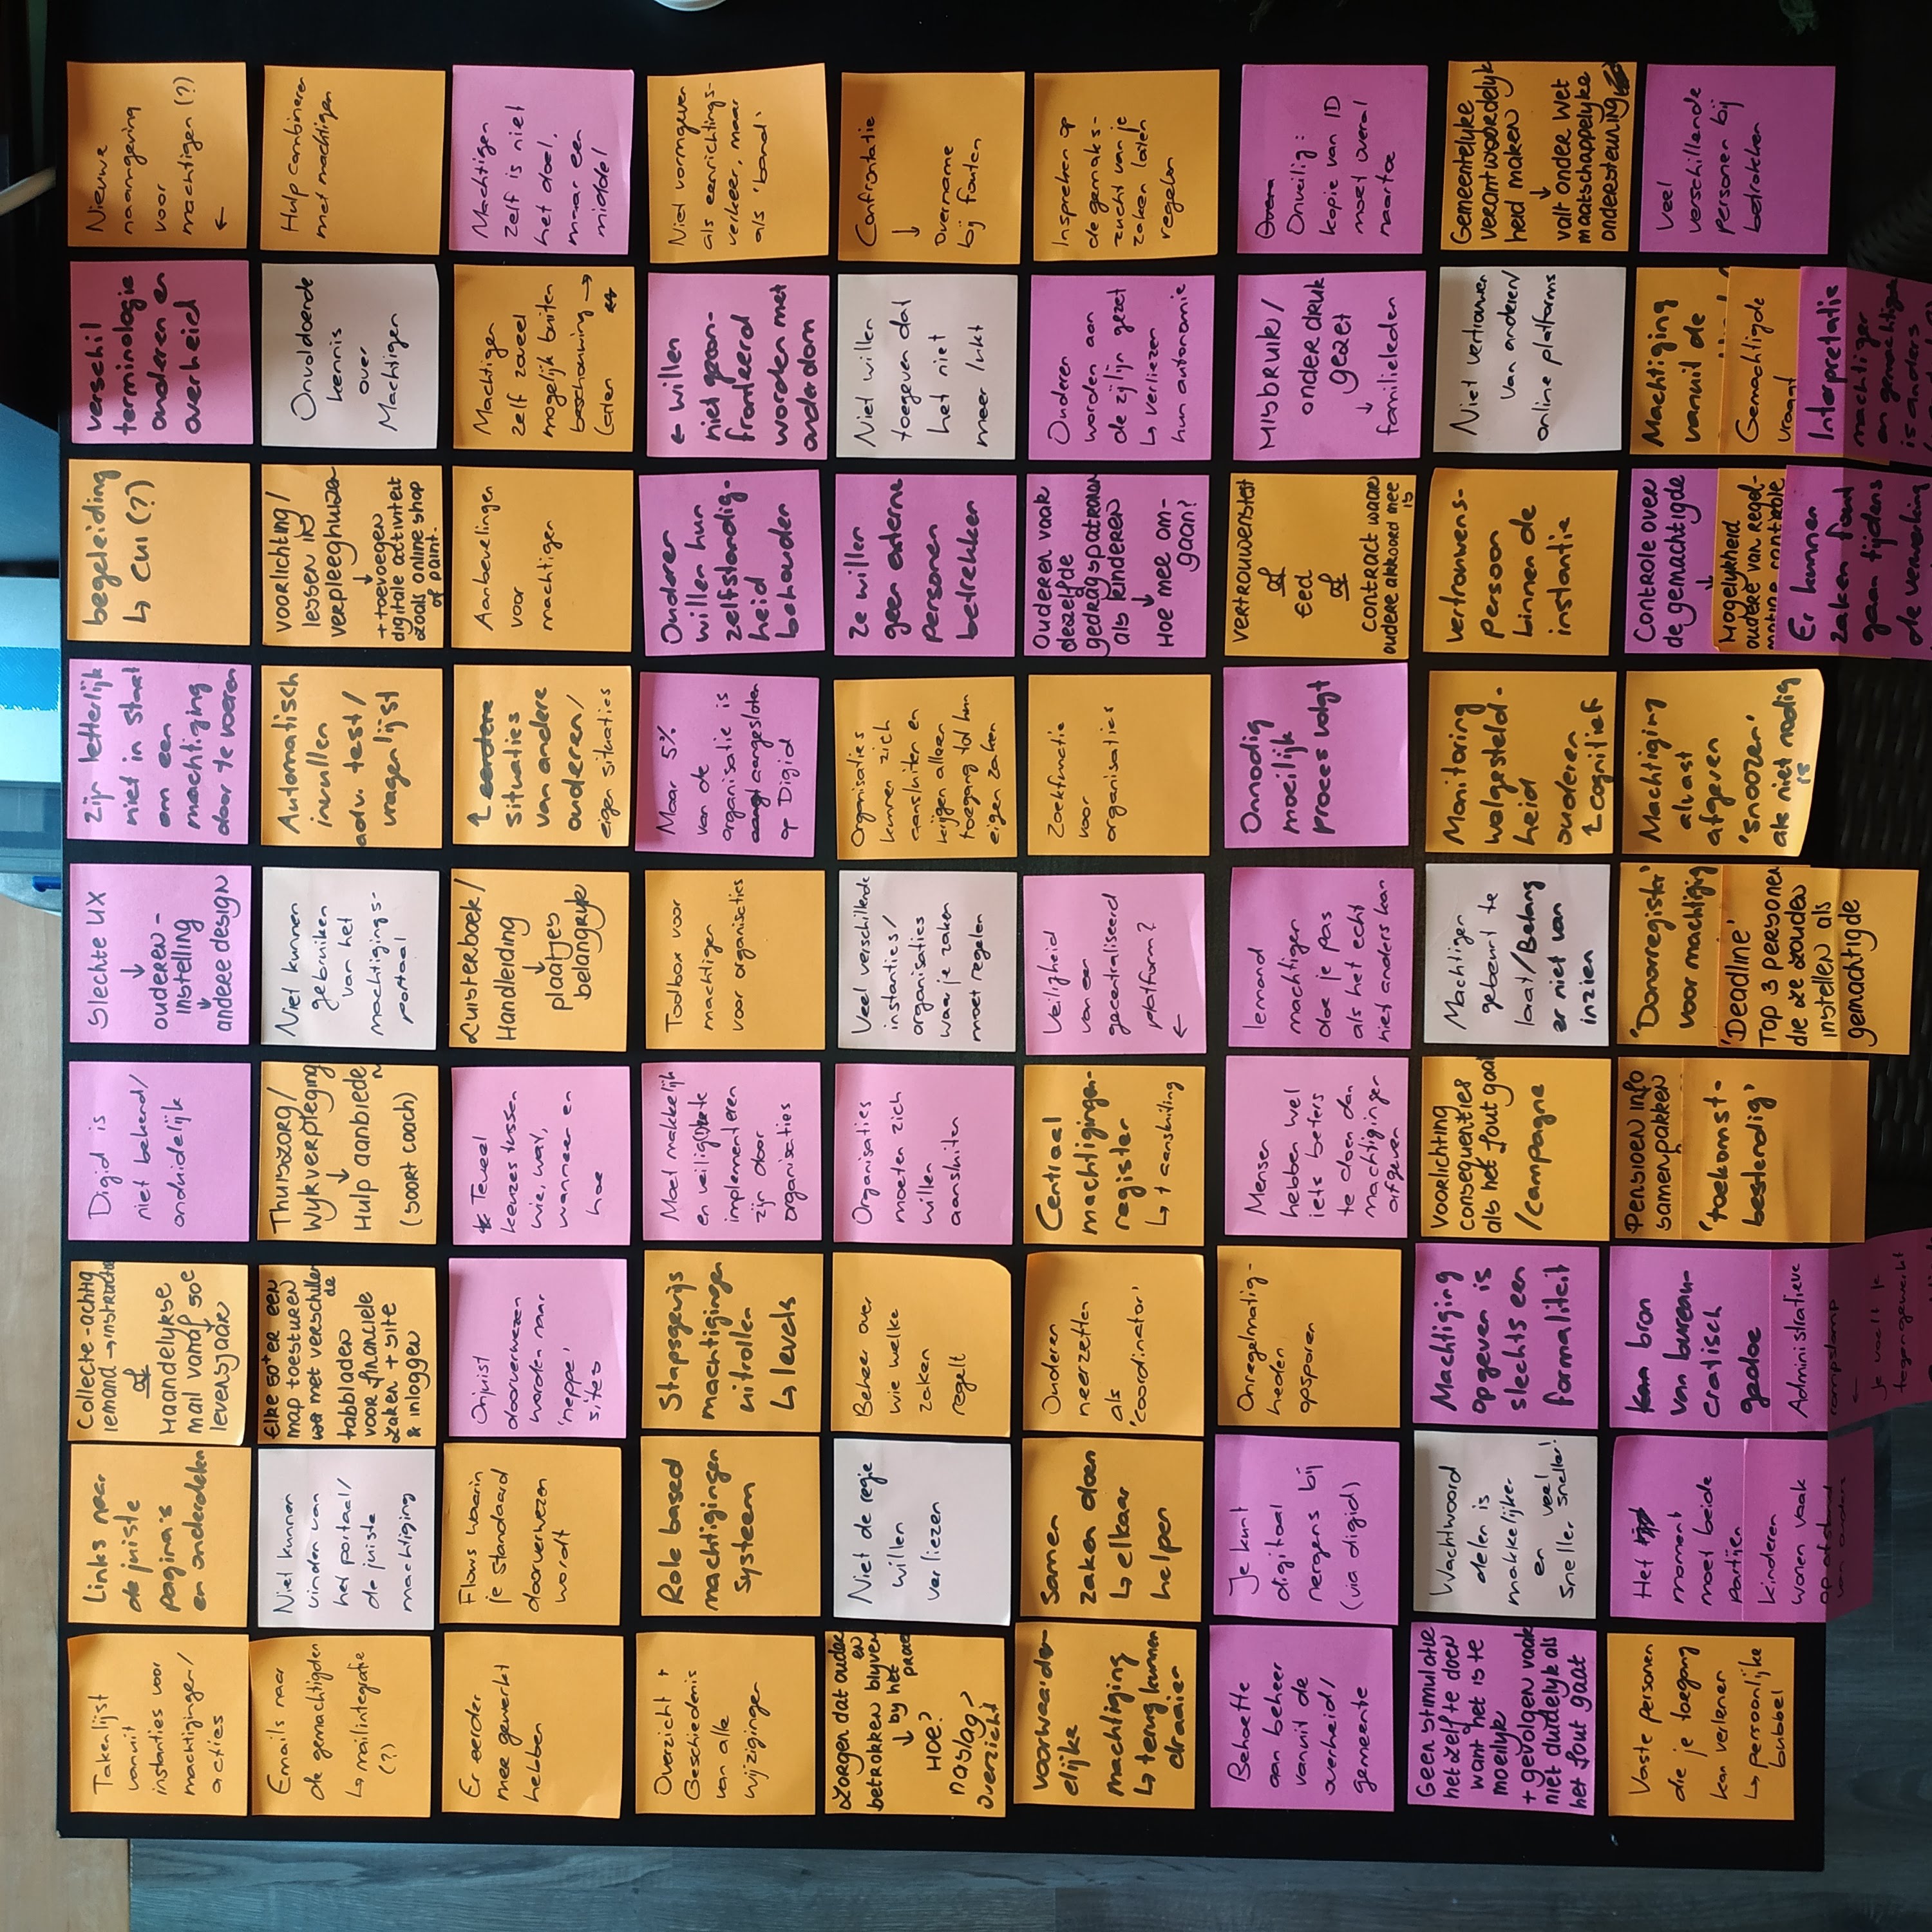 Takenlijst
vanuit
instanties voor
machtigingen/
acties
Links naar
de juiste
pagina's
en onderdelen
Collecte-achtig
iemand → instructie
of
Maandelykse
mail vanaf 50e
levensjaar
Digid is
niet bekend/
onduidelijk
Slechte UX
↓
ouderen-
instelling
↓
andere design
zijn letterlijk
niet in staat
om een
machtiging
door te voeren
begeleiding
↳ CUI (?)
verschil
terminologie
ouderen en
overheid
Nieuwe
naamgeving
voor
machtigen (?)
←
Emails naar
de gemachtigden
↳ mailintegratie
(?)
Niet kunnen
vinden van
het portaal/
de juiste
machtiging
Elke 50+er een
map toesturen
met verschillende
tabbladen
voor financiele
zaken + site
& inloggen
Thuiszorg/
Wykverpleging
↓
Hulp aanbieden
(soort coach)
Niet kunnen
gebruiken
van het
machtigings-
portaal
Automatisch
invullen
adv. test/
vragenlijst
voorlichting/
lessen in
verpleeghuizen
↓
+ toevoegen
digitale activiteit
zoals online shop
of paint.
Onvoldoende
kennis
over
Machtigen
Hulp combineren
met machtigen
Er eerder
mee gewerkt
hebben
Flows waarin
je standaard
doorverwezen
wordt
Onjuist
doorverwezen
worden naar
'neppe'
sites
Teveel
keuzes tussen
wie, wat,
wanneer en
hoe
Luisterboek/
Handleiding
↓
plaatjes
belangryk
↑ eerdere
situaties
van andere
ouderen/
eigen situaties
Aanbevelingen
voor
machtigen
Machtigen
zelf zoveel
mogelijk buiten
beschouwing →
laten
Machtigen
zelf is niet
het doel,
maar een
middel
Overzicht +
Geschiedenis
van alle
wijzigingen
Role based
machtigingen
systeem
Stapsgewijs
machtigingen
uitrollen
↳ levels
Moet makkelijk
en veilig te
implementeren
zijn door
organisaties
Toolbox voor
machtigen
voor organisaties
Maar 5%
van de
organisatie is
aangesloten
op Digid
Ouderen
willen hun
zelfstandig-
heid
behouden
← willen
niet gecon-
fronteerd
worden met
ouderdom
Niet vormgeven
als eenrichtings-
verkeer, maar
als 'band'
Zorgen dat ouderen
betrokken blyven
by het proces
↓
HOE?
naslag?
overzicht
Niet de regie
willen
verliezen
Beheer over
wie welke
zaken
regelt
Organisaties
moeten zich
willen
aansluiten
Veel verschillende
instanties/
organisaties
waar je zaken
moet regelen
Organisaties
kunnen zich
aansluiten en
krijgen alleen
toegang tot hun
eigen zaken
Ze willen
geen externe
personen
betrekken
Niet willen
toegeven dat
het niet
meer lukt
Confrontatie
↓
overname
bij fouten
voorwaarde-
elijke
machtiging
↳ terug kunnen
draaien
Samen
zaken doen
↳ elkaar
helpen
Ouderen
neerzetten
als
'coordinator'
Centraal
machtigingen-
register
↳ 1 aansluiting
Veiligheid
van een
gecentraliseerd
platform?
←
Zoekfunctie
voor
organisaties
Ouderen vaak
dezelfde
gedragspatronen
als kinderen
↓
Hoe mee om-
gaan?
Ouderen
worden aan
de zijlijn gezet
↳ verliezen
hun autonomie
Inspreken op
de gemaks-
zucht van je
zaken laten
regelen
Behoefte
aan beheer
vanuit de
overheid/
gemeente
Je kunt
digitaal
nergens bij
(via digid)
Onregelmatig-
heden
opsporen
Mensen
hebben wel
iets beters
te doen dan
machtigingen
afgeven
Iemand
machtigen
doe je pas
als het echt
niet anders kan
Onnodig
moeilijk
proces volgt
Vertrouwenstest
of
Eed
of
contract waar
oudere akkoord mee
is
Misbruik/
onder druk
gezet
↓
familieleden
Onveilig:
kopie van ID
moet overal
naartoe
Geen stimulatie
het zelf te doen
want het is te
moeilyk
+ gevolgen vaak
niet duidelyk als
het fout gaat
Wachtwoord
delen is
makkelijker
en
sneller veel sneller!
Machtiging
opgeven is
slechts een
formaliteit
Voorlichting
consequenties
als het fout gaat
/campagne
Machtigen
gebeurt te
laat/Belang
er niet van
inzien
Monitoring
welgesteld-
heid
ouderen
↑ cognitief
vertrouwens-
persoon
binnen de
instantie
Niet vertrouwen
van anderen/
online platforms
Gemeentelyke
verantwoordelyk
heid maken
↓
valt onder wet
maatschappelyke
ondersteuning
Vaste personen
die je toegang
kan verlenen
↳ persoonlijke
bubbel
Het
moment
moet beide
partijen
kinderen
wonen vaak
op afstand
van ouders
bron
van bureau-
cratisch
gedoe
Administratieve
rompslomp
←
Je voelt je
tegengewerkt
Pensioen info
samenpakken
'toekomst-
bestendig'
'Donorregister'
voor machtiging
'Deadline'
Top 3 personen
die ze zouden
instellen als
gemachtigde
Machtiging
alvast
afgeven
'snoozen'
als niet nodig
is
Controle over
de gemachtigde
↓
Mogelykheid
oudere van regel-
matige controle
Er kunnen
zaken fout
gaan tijdens
de verwerking
Machtiging
vanuit de
Gemachtigde
vraagt
Interpretatie
machtiger
en gemachtigde
is anders
Veel
verschillende
personen bij
betrokken